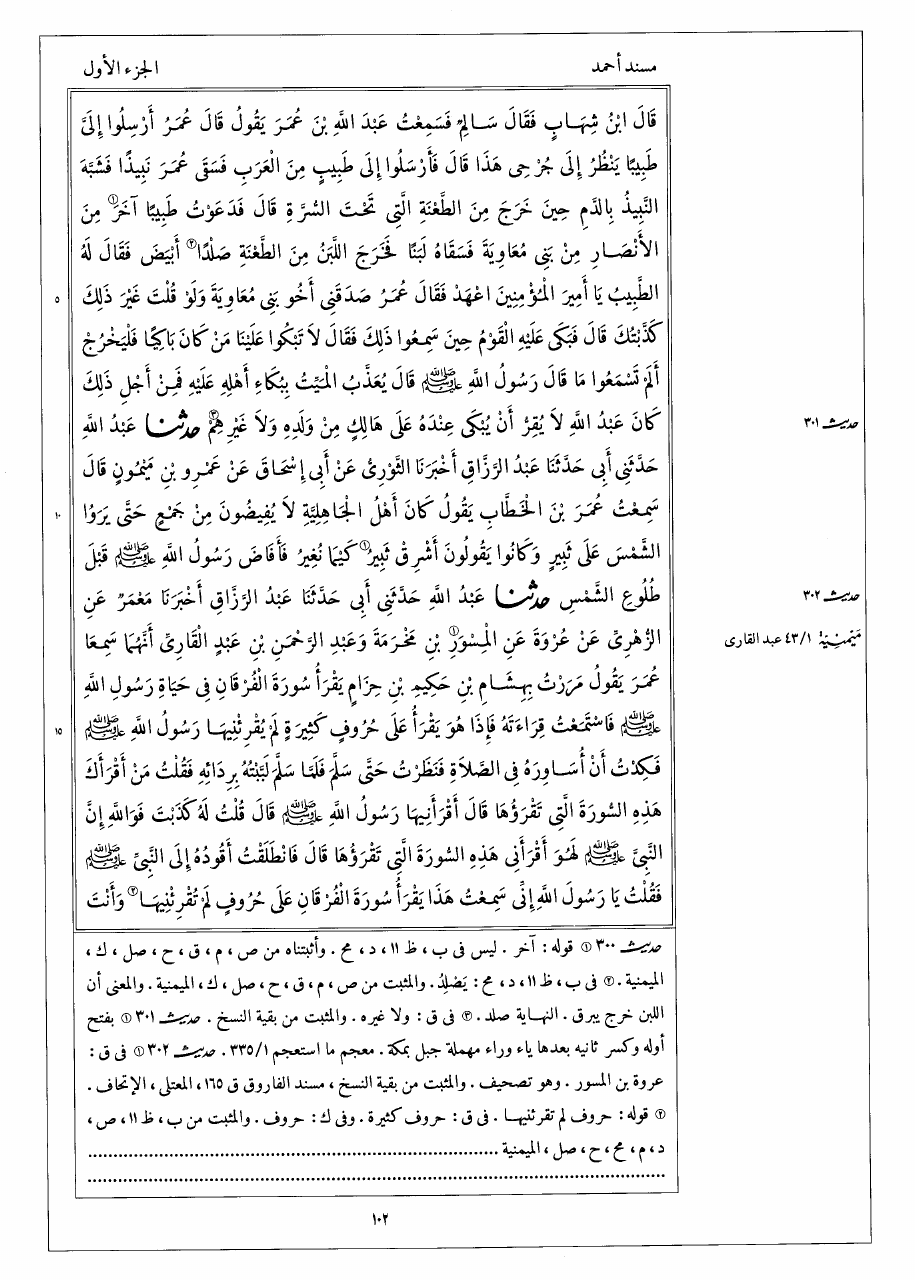 مسند أحمد
الجزء الأول
قَالَ ابْنُ شِهَابٍ فَقَالَ سَالِمٌ فَسَمِعْتُ عَبْدَ اللَّهِ بْنَ عُمَرَ يَقُولُ قَالَ عُمَرُ أَرْسِلُوا إِلَيَّ
طَبِيبًا يَنْظُرُ إِلَى جُرْحِى هَذَا قَالَ فَأَرْسَلُوا إِلَى طَبِيبٍ مِنَ الْعَرَبِ فَسَقَى عُمَرَ نَبِيذًا فَشُبِّهَ
النَّبِيذُ بِالدَّمِ حِينَ خَرَجَ مِنَ الطَّعْنَةِ الَّتِى تَحْتَ السُّرَّةِ قَالَ فَدَعَوْتُ طَبِيبًا آخَرَ① مِنَ
الأَنْصَارِ مِنْ بَنِى مُعَاوِيَةَ فَسَقَاهُ لَبَنًا فَخَرَجَ اللَّبَنُ مِنَ الطَّعْنَةِ صَلْدًا② أَبْيَضَ فَقَالَ لَهُ
الطَّبِيبُ يَا أَمِيرَ الْمُؤْمِنِينَ اعْهَدْ فَقَالَ عُمَرُ صَدَقَنِى أَخُو بَنِى مُعَاوِيَةَ وَلَوْ قُلْتَ غَيْرَ ذَلِكَ
٥
كَذَّبْتُكَ قَالَ فَبَكَى عَلَيْهِ الْقَوْمُ حِينَ سَمِعُوا ذَلِكَ فَقَالَ لاَ تَبْكُوا عَلَيْنَا مَنْ كَانَ بَاكِيًا فَلْيَخْرُجْ
أَلَمْ تَسْمَعُوا مَا قَالَ رَسُولُ اللَّهِ ﷺ قَالَ يُعَذَّبُ الْمَيِّتُ بِبُكَاءِ أَهْلِهِ عَلَيْهِ فَمِنْ أَجْلِ ذَلِكَ
كَانَ عَبْدُ اللَّهِ لاَ يُقِرُّ أَنْ يُبْكَى عِنْدَهُ عَلَى هَالِكٍ مِنْ وَلَدِهِ وَلاَ غَيْرِهِمْ③ حدثنا عَبْدُ اللَّهِ
حديث ٣٠١
حَدَّثَنِى أَبِى حَدَّثَنَا عَبْدُ الرَّزَّاقِ أَخْبَرَنَا الثَّوْرِىُّ عَنْ أَبِى إِسْحَاقَ عَنْ عَمْرِو بْنِ مَيْمُونٍ قَالَ
سَمِعْتُ عُمَرَ بْنَ الْخَطَّابِ يَقُولُ كَانَ أَهْلُ الْجَاهِلِيَّةِ لاَ يُفِيضُونَ مِنْ جَمْعٍ حَتَّى يَرَوُا
١٠
الشَّمْسَ عَلَى ثَبِيرٍ وَكَانُوا يَقُولُونَ أَشْرِقْ ثَبِيرُ① كَيْمَا نُغِيرُ فَأَفَاضَ رَسُولُ اللَّهِ ﷺ قَبْلَ
طُلُوعِ الشَّمْسِ حدثنا عَبْدُ اللَّهِ حَدَّثَنِى أَبِى حَدَّثَنَا عَبْدُ الرَّزَّاقِ أَخْبَرَنَا مَعْمَرٌ عَنِ
حديث ٣٠٢
الزُّهْرِىِّ عَنْ عُرْوَةَ عَنِ الْمِسْوَرِ① بْنِ مَخْرَمَةَ وَعَبْدِ الرَّحْمَنِ بْنِ عَبْدٍ الْقَارِىِّ أَنَّهُمَا سَمِعَا
ميمنية ٤٣/١ عبد القارى
عُمَرَ يَقُولُ مَرَرْتُ بِهِشَامِ بْنِ حَكِيمِ بْنِ حِزَامٍ يَقْرَأُ سُورَةَ الْفُرْقَانِ فِى حَيَاةِ رَسُولِ اللَّهِ
ﷺ فَاسْتَمَعْتُ قِرَاءَتَهُ فَإِذَا هُوَ يَقْرَأُ عَلَى حُرُوفٍ كَثِيرَةٍ لَمْ يُقْرِئْنِيهَا رَسُولُ اللَّهِ ﷺ
١٥
فَكِدْتُ أَنْ أُسَاوِرَهُ فِى الصَّلاَةِ فَنَظَرْتُ حَتَّى سَلَّمَ فَلَمَّا سَلَّمَ لَبَّبْتُهُ بِرِدَائِهِ فَقُلْتُ مَنْ أَقْرَأَكَ
هَذِهِ السُّورَةَ الَّتِى تَقْرَؤُهَا قَالَ أَقْرَأَنِيهَا رَسُولُ اللَّهِ ﷺ قَالَ قُلْتُ لَهُ كَذَبْتَ فَوَاللَّهِ إِنَّ
النَّبِىَّ ﷺ لَهُوَ أَقْرَأَنِى هَذِهِ السُّورَةَ الَّتِى تَقْرَؤُهَا قَالَ فَانْطَلَقْتُ أَقُودُهُ إِلَى النَّبِىِّ ﷺ
فَقُلْتُ يَا رَسُولَ اللَّهِ إِنِّى سَمِعْتُ هَذَا يَقْرَأُ سُورَةَ الْفُرْقَانِ عَلَى حُرُوفٍ لَمْ تُقْرِئْنِيهَا② وَأَنْتَ
حديث ٣٠٠ ① قوله: آخر. ليس فى ب، ظ ١١، د، مح. وأثبتناه من ص، م، ق، ح، صل، ك،
الميمنية. ② فى ب، ظ ١١، د، مح: يَصْلِدُ. والمثبت من ص، م، ق، ح، صل، ك، الميمنية. والمعنى أن
اللبن خرج يبرق. النهاية صلد. ③ فى ق: ولا غيره. والمثبت من بقية النسخ. حديث ٣٠١ ① بفتح
أوله وكسر ثانيه بعدها ياء وراء مهملة جبل بمكة. معجم ما استعجم ٣٣٥/١. حديث ٣٠٢ ① فى ق:
عروة بن المسور. وهو تصحيف. والمثبت من بقية النسخ، مسند الفاروق ق ١٦٥، المعتلى، الإتحاف.
② قوله: حروف لم تقرئنيها. فى ق: حروف كثيرة. وفى ك: حروف. والمثبت من ب، ظ ١١، ص،
د، م، مح، ح، صل، الميمنية
١٠٢